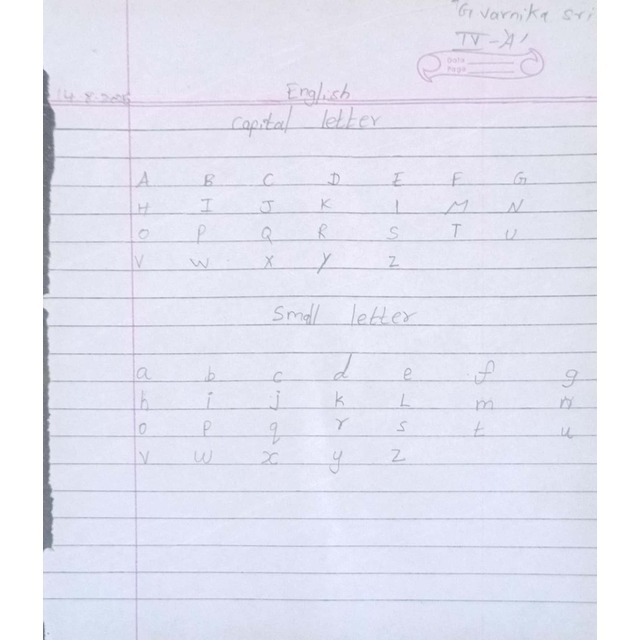 G varnika sri
IV-'A'
Date
Page
English
Capital letter
A B C D E F G
H I J K l M N
O P Q R S T U
V W X Y Z
Small letter
a b c d e f g
h i j k L m n
o p q r s t u
v w x y z